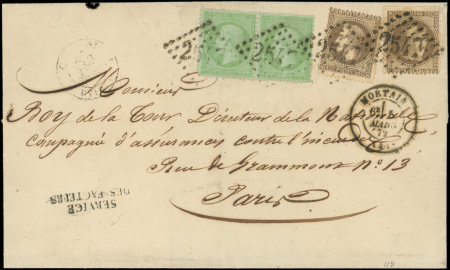 257
MORTAIN
MARS
72
Monsieur
Roy de la Tour Directeur de la Nationale
Compagnie d'assurances contre l'incendie
Rue de Grammont No 13
Paris
SERVICE
DES FACTEURS